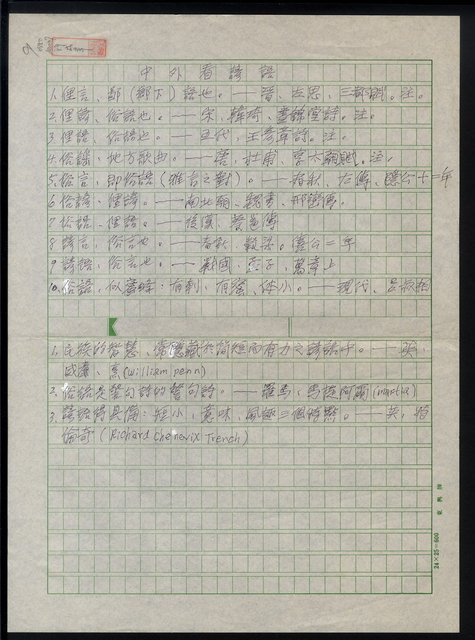 中外看諺語
1. 俚言、鄙(鄉下)語也。——晋、左思、三都賦。注。
2. 俚諺、俗語也。——宋、韓琦、晝錦堂詩。注。
3. 俚語、俗語也。——五代、王彥章詩。注。
4. 俗諺、地方歌曲。——杜甫、注。
5. 俗言、即俗語(雅言之對)。——春秋、左傳、僖公十一年
6. 俗諺、俚諺。——南北朝、魏書、邢巒傳。
7. 俗語、俚語。——後漢、蔡邕傳
8 諺言、俗言也。——春秋、穀梁。僖公二年
9 諺語、俗言也。——戰國、孟子、萬章上
10. 俗語、似蜜蜂：有刺、有蜜、体小。——現代、
1. 民族的智慧、常隱藏於簡短而有力之諺語中。——英
威廉、(william penn)
2. 俗語是警句詩的警句詩。——羅馬、馬提阿爾(martia)
3. 諺語特是傷：短小、意味、風趣三個特點。——英、
倫奇(Richard chenevix Trench)
24×25=600